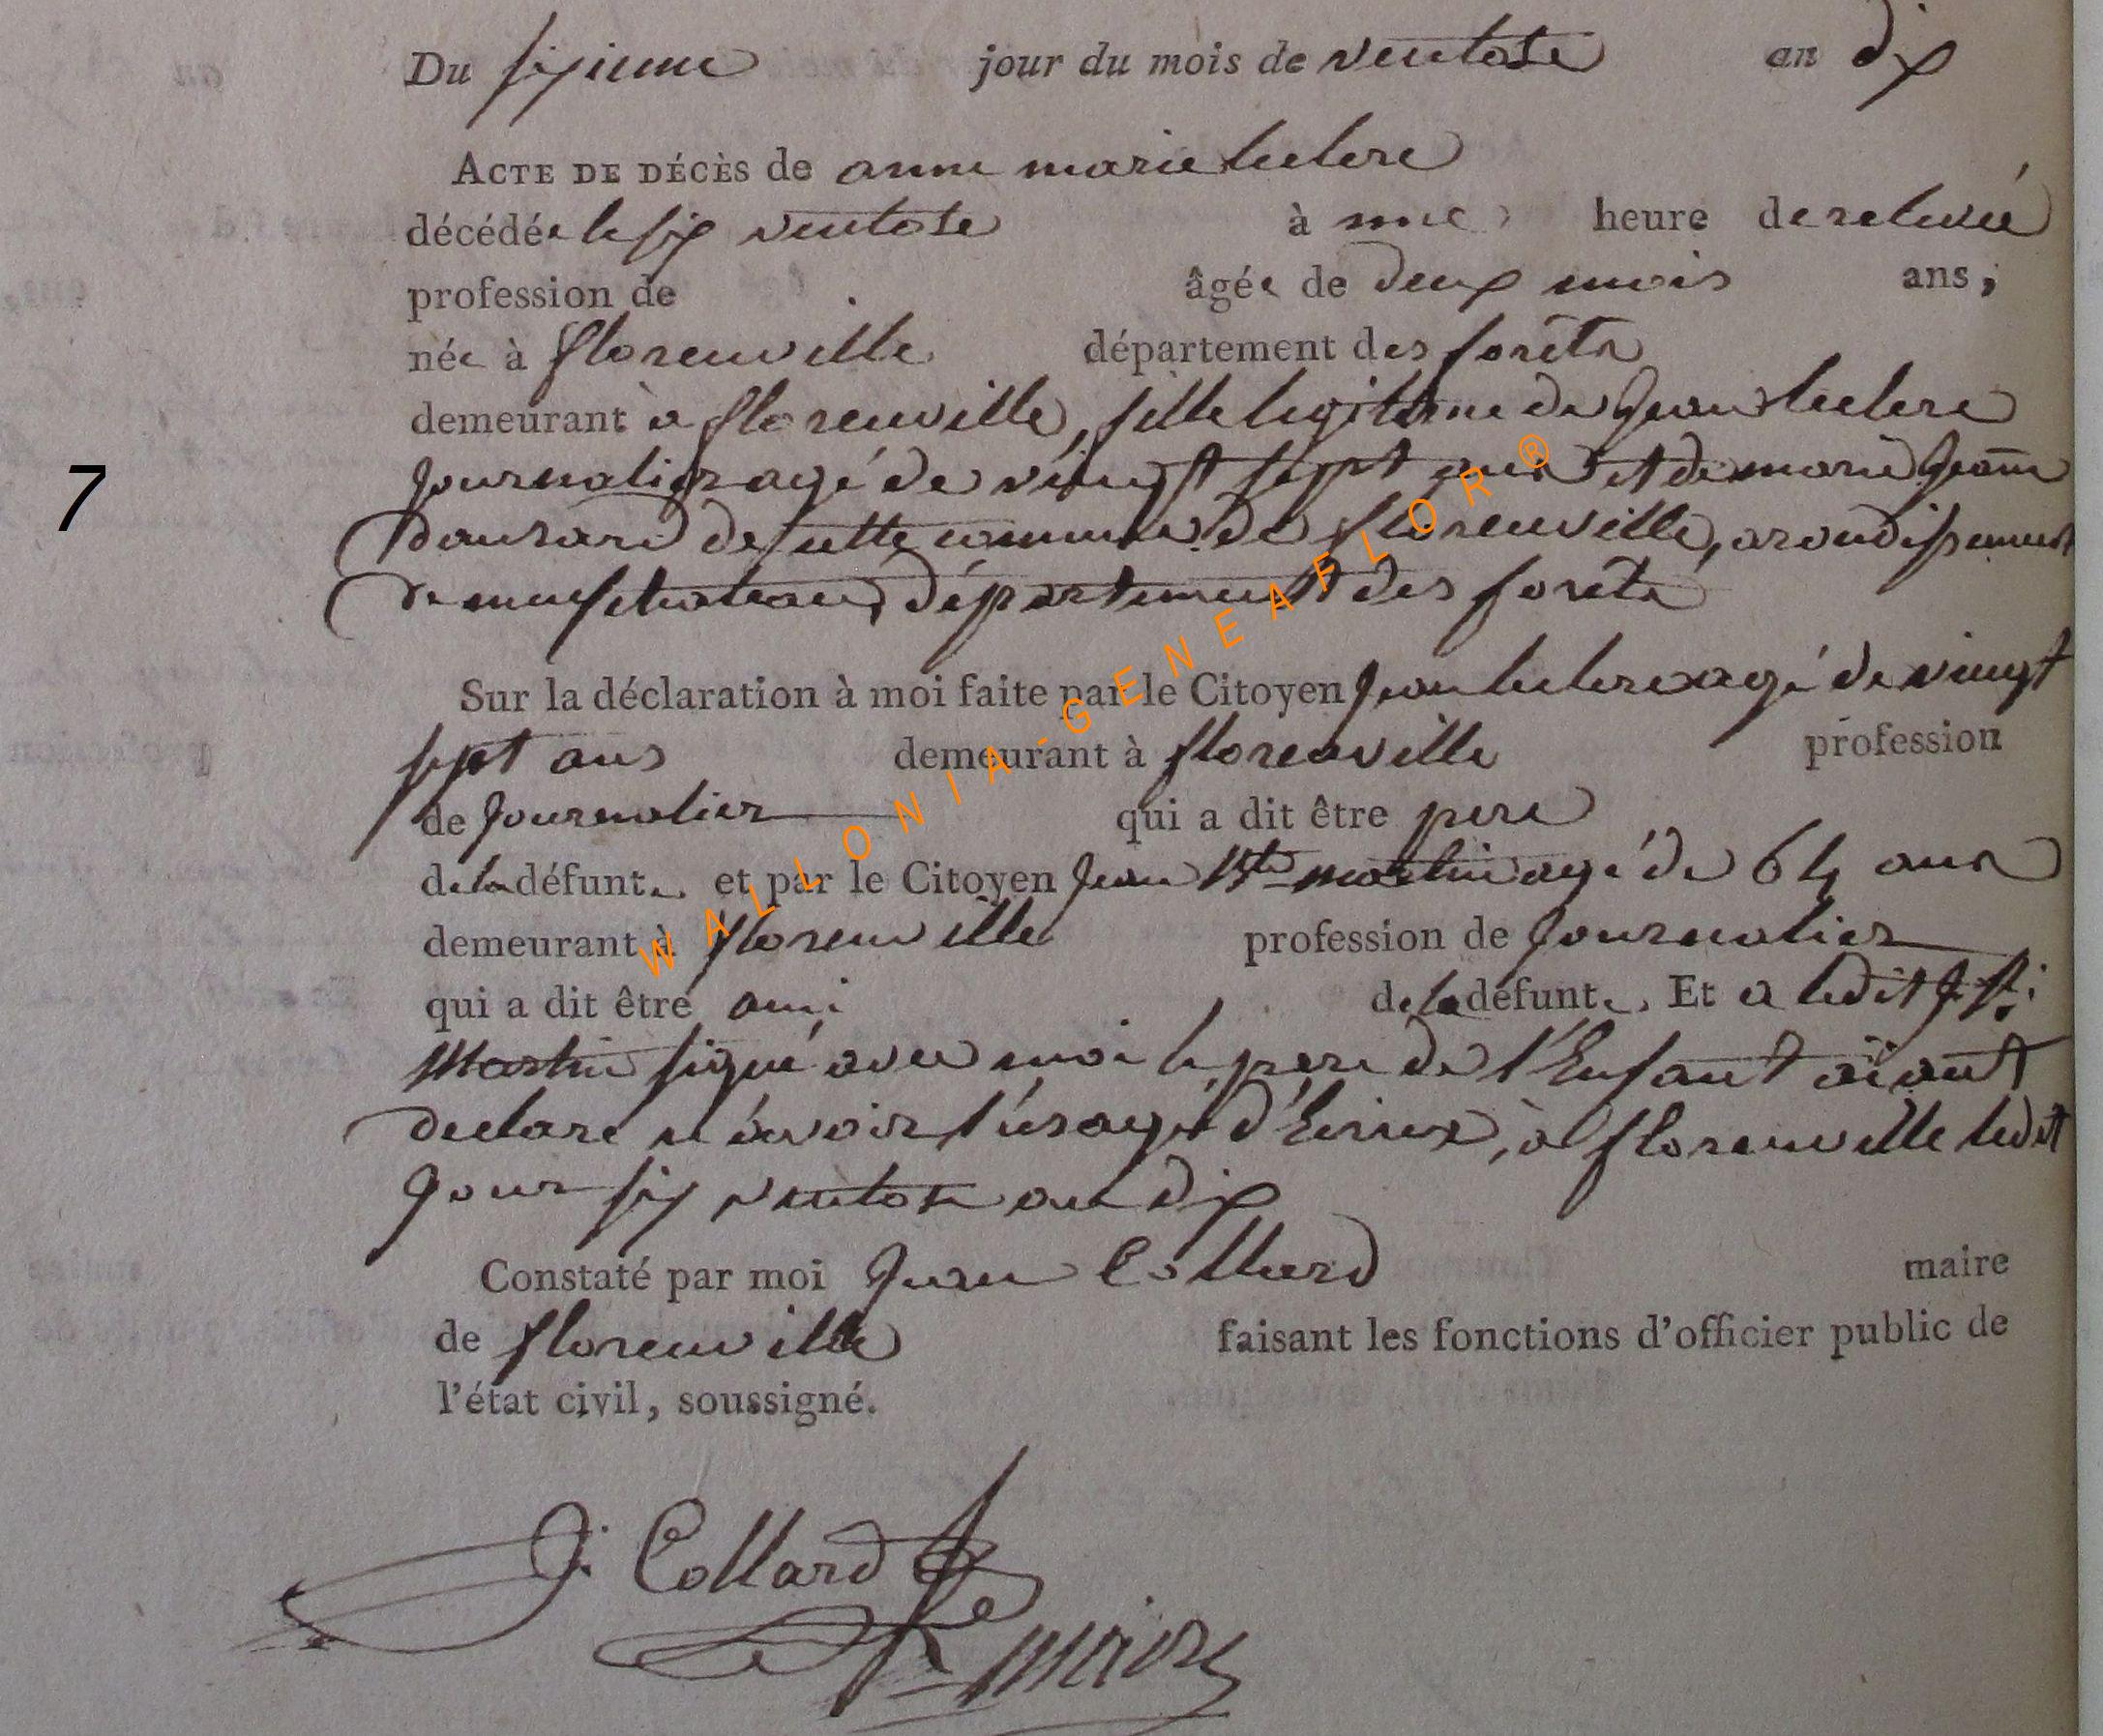 Du sixieme jour du mois de ventose an dix
ACTE DE DÉCÈS de anne marie leclere
décédée le six ventose à une heure de relevée
profession de âgée de deux mois ans,
née à florenville département des forêts
demeurant à florenville, fille legitime de Jean leclere
Journalier agé de vingt sept ans et de marie Jeanne
de cette commune de florenville, arondissement
de neufchateau, département des forêts
7
Sur la déclaration à moi faite par le Citoyen Jean leclere agé de vingt
sept ans demeurant à florenville profession
de Journalier qui a dit être pere
de la défunte et par le Citoyen Jean Bte martin agé de 64 ans
demeurant à florenville profession de Journalier
qui a dit être ami de la défunte. Et a ledit
Martin signé avec moi le pere de l'Enfant aïant
declare n'avoir l'usage d'Ecrire, à florenville ledit
Jour six ventose an dix
Constaté par moi Jean Collard maire
de florenville faisant les fonctions d'officier public de
l'état civil, soussigné.
J. Collard
WALLONIA-GENEAFLOR®